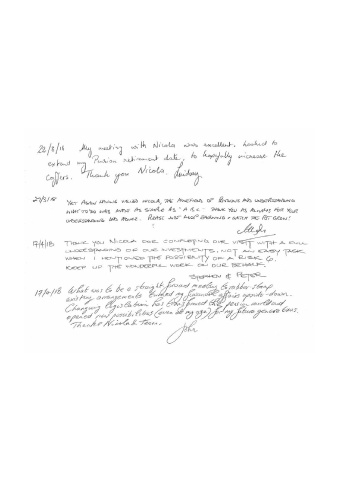 22/2/18 My meeting with Nicola was excellent, looked to
extend my Pension retirement date, to hopefully increase the
coffers. Thank you Nicola, Lindsay
YET AGAIN HAVING NICOLA, THE PATIENCE AND UNDERSTANDING
WAS MADE AS SIMPLE AS "A B C" THANK YOU AS ALWAYS FOR YOUR
UNDERSTANDING AND ADVICE. PLEASE
17/4/18 THANK YOU NICOLA FOR COMPLETING OUR VISIT WITH A FULL
UNDERSTANDING OF OUR INVESTMENTS, NOT AN EASY TASK
WHEN I MENTIONED THE POSSIBILITY OF A RISK 6.
KEEP UP THE WONDERFUL WORK ON OUR BEHALF.
STEPHEN & PETER
19/4/18 What was to be a straight forward meeting to rubber stamp
existing arrangements turned my financial affairs upside-down.
Changing legislation has transformed the pension and
opened new possibilities (even at my age) for my future generations.
Thanks Nicola & Team. John